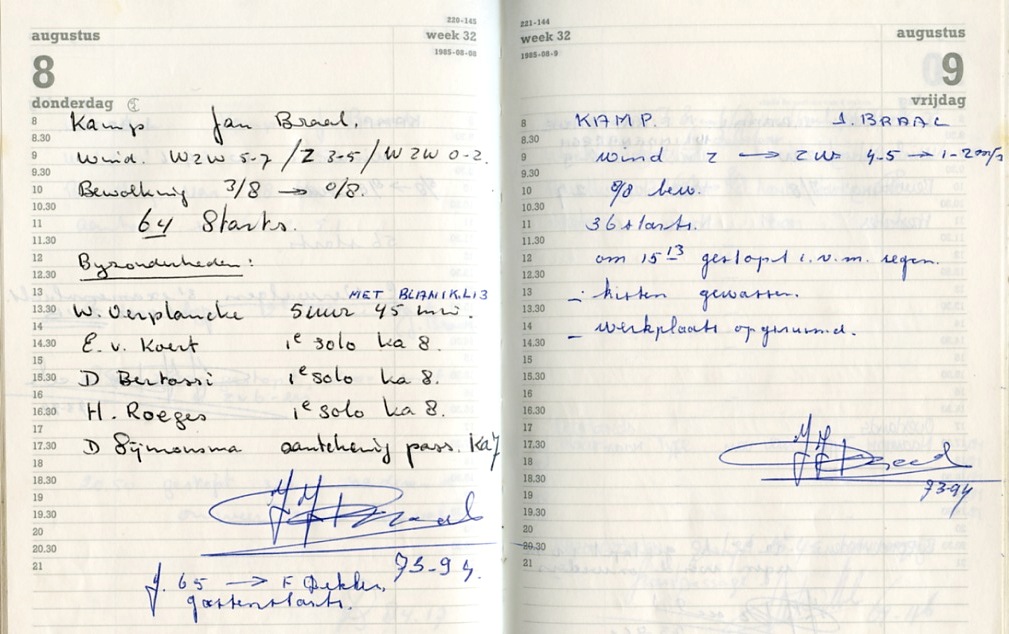 220-145
augustus
week 32
1985-08-08
8
donderdag
8 Kamp Jan Braal.
8.30
9 Wind. WZW 5-7 / Z 3-5 / WZW 0-2.
9.30
10 Bewolking 3/8 → 0/8.
10.30
11 64 Starts.
11.30
12 Byzonderheden:
12.30
13 MET BLANIK.L13
13.30 W. Verplancke 5 uur 45 min.
14
14.30 E. v. Koert 1e solo ka 8.
15
15.30 D Bertossi 1e solo ka 8.
16
16.30 H. Roeges 1e solo ka 8.
17
17.30 D Sijmonsma aantekenig pass. Ka7
18
18.30
19
19.30
20
20.30
21
73-94.
f. 65 → F Dekker,
gastenstarts.
221-144
week 32
augustus
1985-08-9
9
vrijdag
8 KAMP. J. BRAAL
8.30
9 wind Z → ZW 4-5 → 1-2 m/s
9.30
10 8/8 bew.
10.30
11 36 starts.
11.30
12 om 15 13 gestopt i.v.m. regen.
12.30
13 - kisten gewassen.
13.30
14 - werkplaats opgeruimd.
14.30
15
15.30
16
16.30
17
17.30
18
18.30
73-94
19
19.30
20
20.30
21